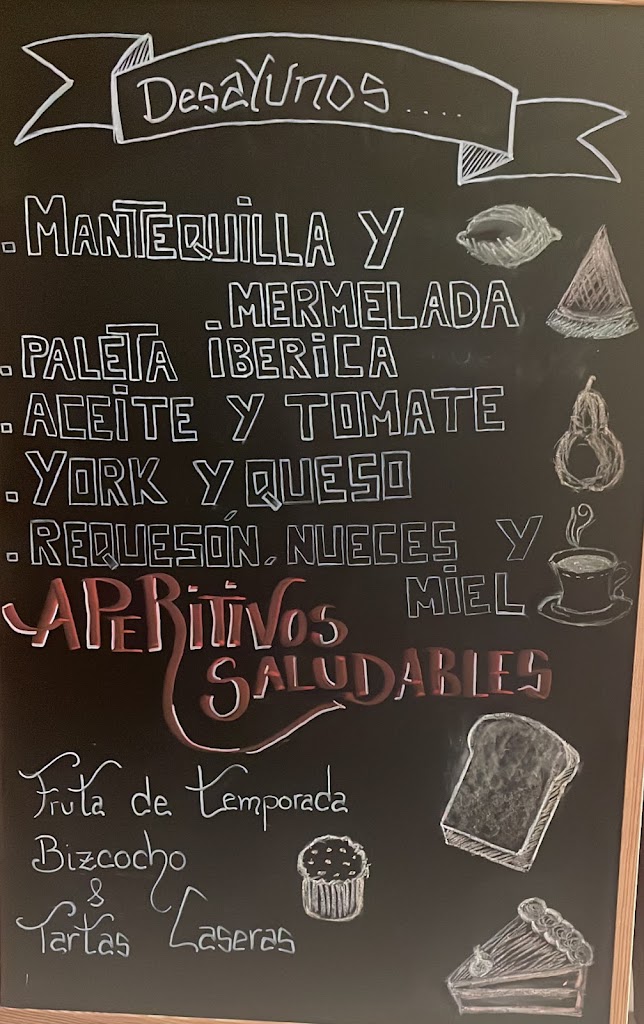 DesaYunos ....
. MANTEQUILLA Y
. MERMELADA
. PALETA IBERICA
. ACEITE Y TOMATE
. YORK Y QUESO
. REQUESÓN, NUECES Y
MIEL
APERITIVOS
SALUDABLES
Fruta de temporada
Bizcocho
&
Tartas Caseras